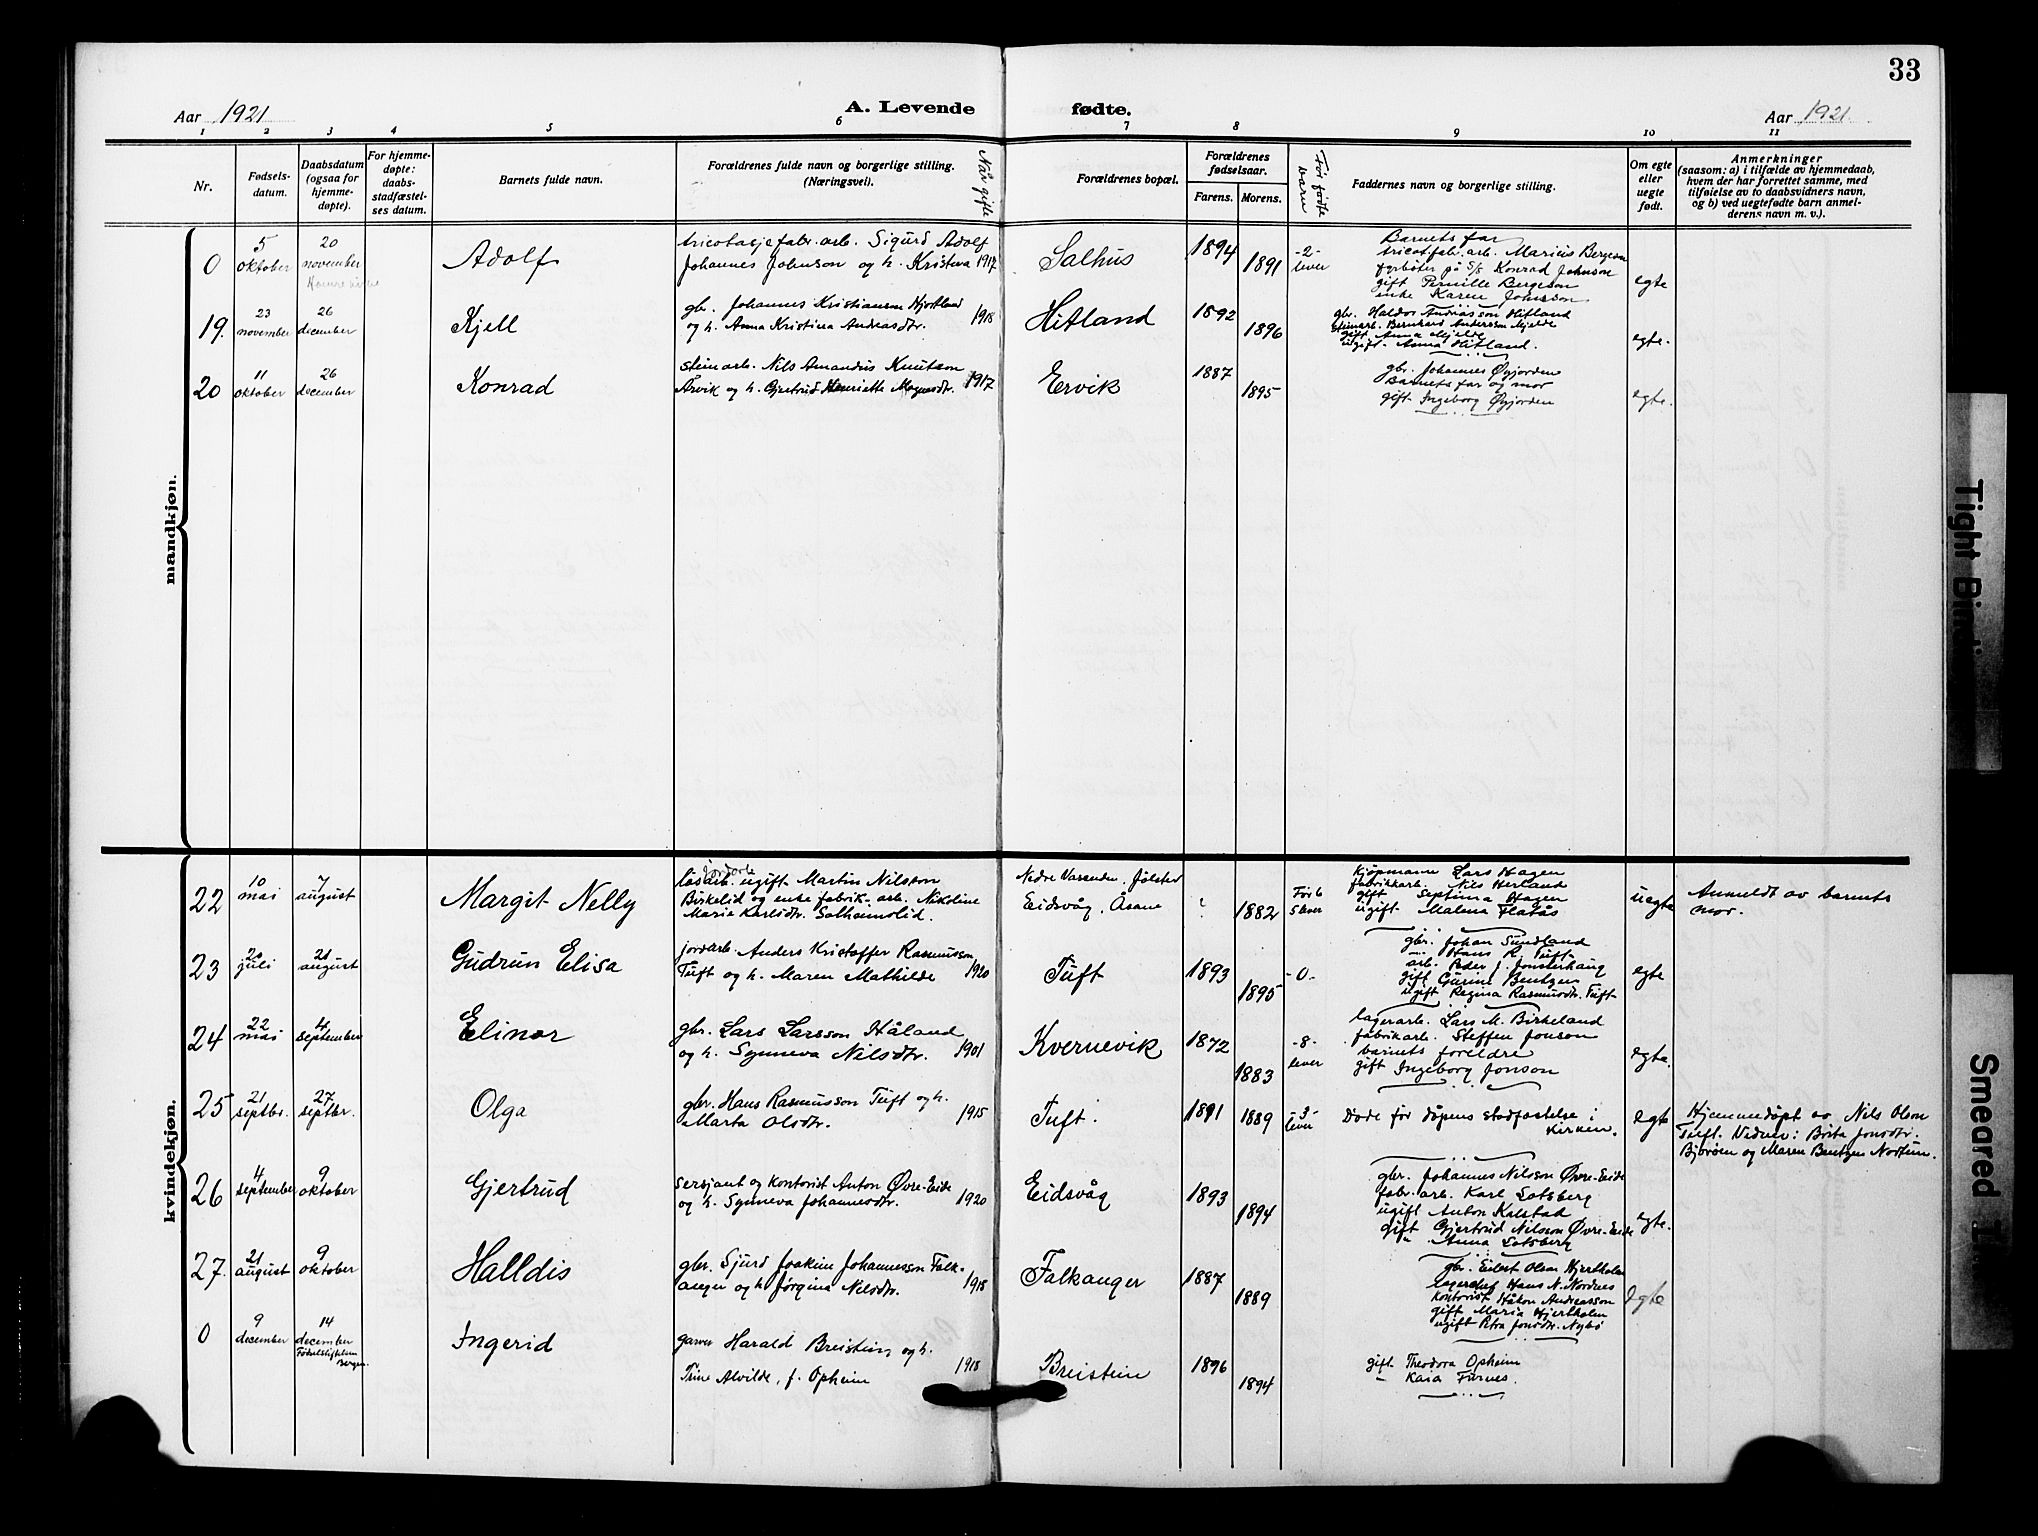 33
Aar 1921
A. Levende fødte.
Aar 1921.
1 2 3 4 5 6 7 8 9 10 11
Nr.
Fødsels-
datum.
Daabsdatum
(ogsaa for
hjemme-
døpte).
For hjemme-
døpte:
daabs-
stadfæstel-
ses datum.
Barnets fulde navn.
Forældrenes fulde navn og borgerlige stilling.
(Næringsvei).
Når gifte
Forældrenes bopæl.
Forældrenes
fødselsaar.
Farens. Morens.
Før fødte
barn
Faddernes navn og borgerlige stilling.
Om egte
eller
uegte
født.
Anmerkninger
(saasom: a) i tilfælde av hjemmedaab,
hvem der har forrettet samme, med
tilføielse av to daabsvidners navn,
og b) ved uegtefødte barn anmel-
derens navn m. v.).
mandkjøn.
0
5
oktober
20
november
Adolf
tricotasjefabr. arb. Sigurd Adolf
Johannes Johnson og h. Kristina 1917
Salhus
1894
1891
-2-
lever
Barnets far
tricotfabr. arb. Marius Bergeson
fyrbøter på S/S Konrad Johnson
gift Pernille Bergeson
enke Karen Johnsson
egte
19.
23
november
26
december
Kjell
gbr. Johannes Kristianson Hjortland
og h. Anna Kristina Andreasdtr. 1918
Hitland
1892
1896
gbr. Haldor Andreasson Hitland
steinarb. Bernhard Andersson Mjelde
gift Anna Mjelde
ugift Anna Hitland.
egte.
20
11
oktober
26
december
Konrad
steinarb. Nils Amandus Knutson
Årvik og h. Gjertrud Henriette Magnusdtr. 1917
Ervik
1887
1895
gbr. Johannes Øyjorden
Barnets far og mor
gift Ingeborg Øyjorden
egte.
kvindekjøn.
22
10
mai
7
august
Margit Nelly
løsarb. ugift Martin Nilsson
Birkelid og enke fabrik. arb. Nikoline
Marie Karlsdtr. Solheimslid.
Nedre Vassenden. Jølster
Eidsvåg, Åsane
?
1882
Før 6
5 lever
kjøpmann Lars Hagen
fabrikkarb. Nils Herland
gift Septima Hagen
ugift Malena Flatås
uegte
Anmeldt av barnets
mor.
23
20
juli
21
august
Gudrun Elisa
jordarb. Anders Kristoffer Rasmusson
Tuft og h. Maren Mathilde 1920
Tuft
1893
1895
-0-
gbr. Johan Sundland
" Hans R. Tuft
arb. Peder J. Jonsterhaug
gift Gurine Bentzen
ugift Regina Rasmusdtr. Tuft
egte
24
22
mai
4
september
Elinor
gbr. Lars Larsson Håland
og h. Synneva Nilsdtr. 1901
Kvernevik
1872
1883
-8-
lever
lagerarb. Lars M. Birkeland
fabrikarb. Steffen Jonson
barnets foreldre
gift Ingeborg Jonson
egte.
25
21
septbr.
27
septbr.
Olga
gbr. Hans Rasmusson Tuft og h.
Marta Olsdtr. 1915
Tuft.
1891
1889
-3-
lever
Døde før dåpens stadfestelse i
kirken.
egte
Hjemmedøpt av Nils Olson
Tuft. Vidner: Brita Jonsdtr.
Bjørøen og Maren Bentzen Nortun.
26
4
september
9
oktober
Gjertrud
sersjant og kontorist Anton Øvre-Eide
og h. Synneva Johannesdtr. 1920
Eidsvåg
1893
1894
gbr. Johannes Nilsson Øvre-Eide
fabr. arb. Karl Lotsberg
ugift Anton Kalstad
gift Gjertrud Nilsson Øvre-Eide
" Anna Lotsberg
egte.
27.
21
august
9
oktober
Halldis
gbr. Sjurd Joakim Johannesson Falk-
anger og h Jørgina Nilsdtr. 1918
Falkanger
1887
1889
gbr. Eilert Olson Hjertholm
lagersjef Hans N. Nordnes
kontorist Håkon Andreasson
gift Maria Hjertholm
ugift Petra Jonsdtr. Nybø
Egte
0
9
december
14
december
Fødselsstiftelsen
Bergen.
Ingerid
garver Harald Breistein og h.
Trine Alvilde, f. Opheim 1918
Breistein
1896
1894
gift Theodora Opheim
" Kaia Furnes.
Smeared